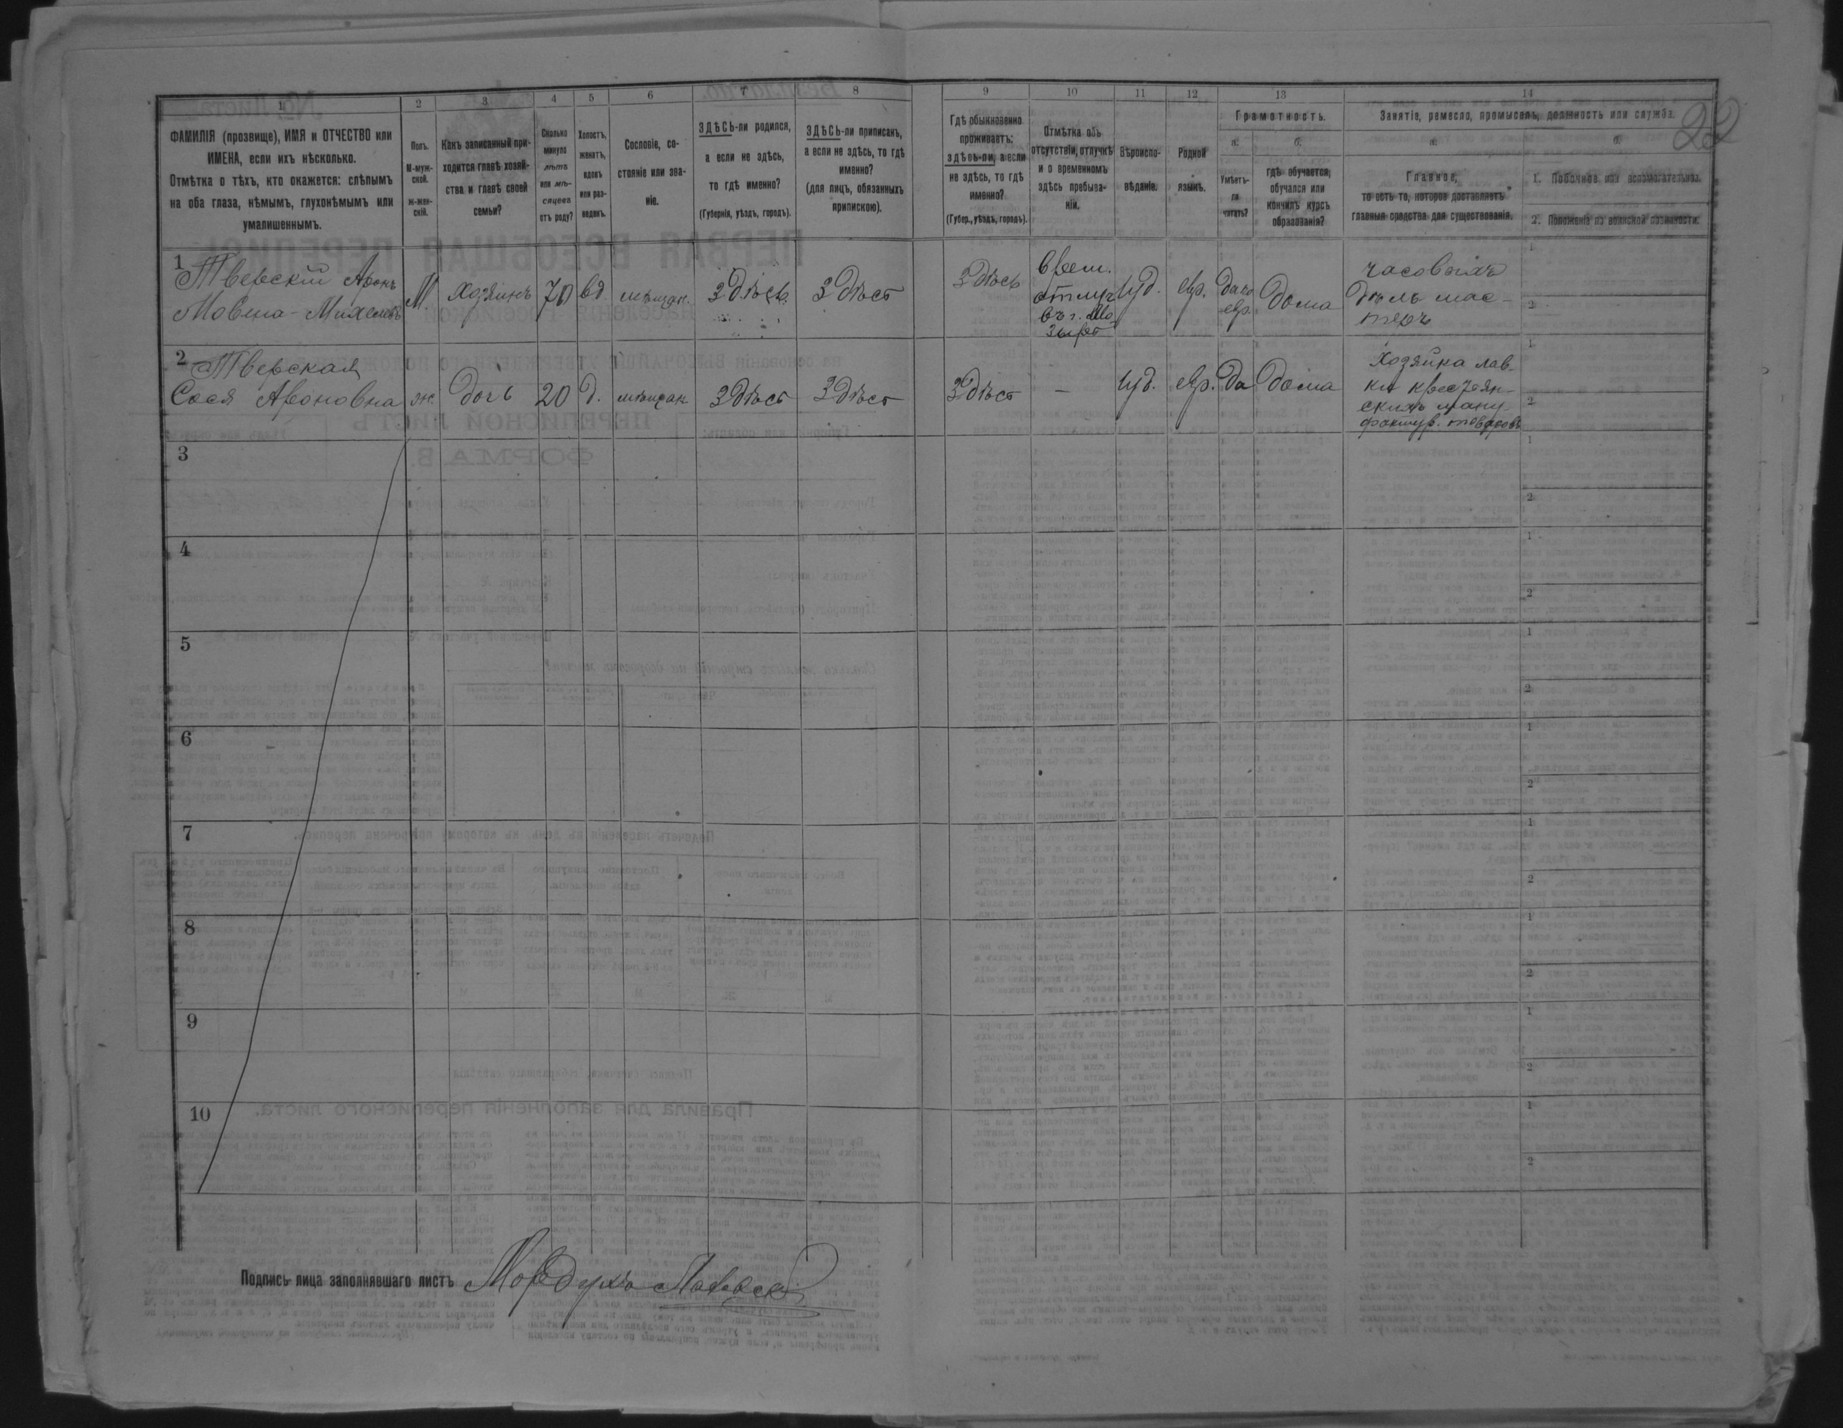 1 2 3 4 5 6 7 8 9 10 11 12 13 14
22
ФАМИЛІЯ (прозвище), ИМЯ и ОТЧЕСТВО или
ИМЕНА, если ихъ нѣсколько.
Отмѣтка о тѣхъ, кто окажется: слѣпымъ
на оба глаза, нѣмымъ, глухонѣмымъ или
умалишеннымъ.
Полъ.
М-муж-
ской.
ж-жен-
скій.
Какъ записанный при-
ходится главѣ хозяй-
ства и главѣ своей
семьи?
Сколько
минуло
лѣтъ
или мѣ-
сяцевъ
отъ роду?
Холостъ,
женатъ,
вдовъ
или раз-
веденъ.
Сословіе, со-
стояніе или зва-
ніе.
ЗДѢСЬ-ли родился,
а если не здѣсь,
то гдѣ именно?
(Губернія, уѣздъ, городъ).
ЗДѢСЬ-ли приписанъ,
а если не здѣсь, то гдѣ
именно?
(для лицъ, обязанныхъ
припискою).
Гдѣ обыкновенно
проживаетъ:
здѣсь-ли, а если
не здѣсь, то гдѣ
именно?
(Губер., уѣздъ, городъ).
Отмѣтка объ
отсутствіи, отлучкѣ
и о временномъ
здѣсь пребыва-
ніи.
Вѣроиспо-
вѣданіе.
Родной
языкъ.
Грамотность.
а.
Умѣетъ-
ли
читать?
б.
гдѣ обучается,
обучался или
кончилъ курсъ
образованія?
Занятіе, ремесло, промыселъ, должность или служба.
а.
Главное,
то есть то, которое доставляетъ
главныя средства для существованія.
б.
1. Побочное или вспомогательное.
2. Положеніе по воинской повинности.
1
Тверскій Аронъ
Мовша-Михелевъ
М хозяинъ 70 вд мѣщан. Здѣсь Здѣсь
Здѣсь
врем.
отлуч
въ г.
Іуд. евр.
Да по
евр.
Дома
часовыхъ
дѣлъ мас-
теръ
1
2
2
Тверская
Сося Ароновна
ж дочь 20 д. мѣщан Здѣсь Здѣсь
Здѣсь — Іуд. евр. Да Дома
Хозяйка лав-
ки крестьян-
скихъ ману-
фактур. товаровъ
1
2
3
1
2
4
1
2
5
1
2
6
1
2
7
1
2
8
1
2
9
1
2
10
1
2
Подпись лица заполнявшаго листъ Мордухъ